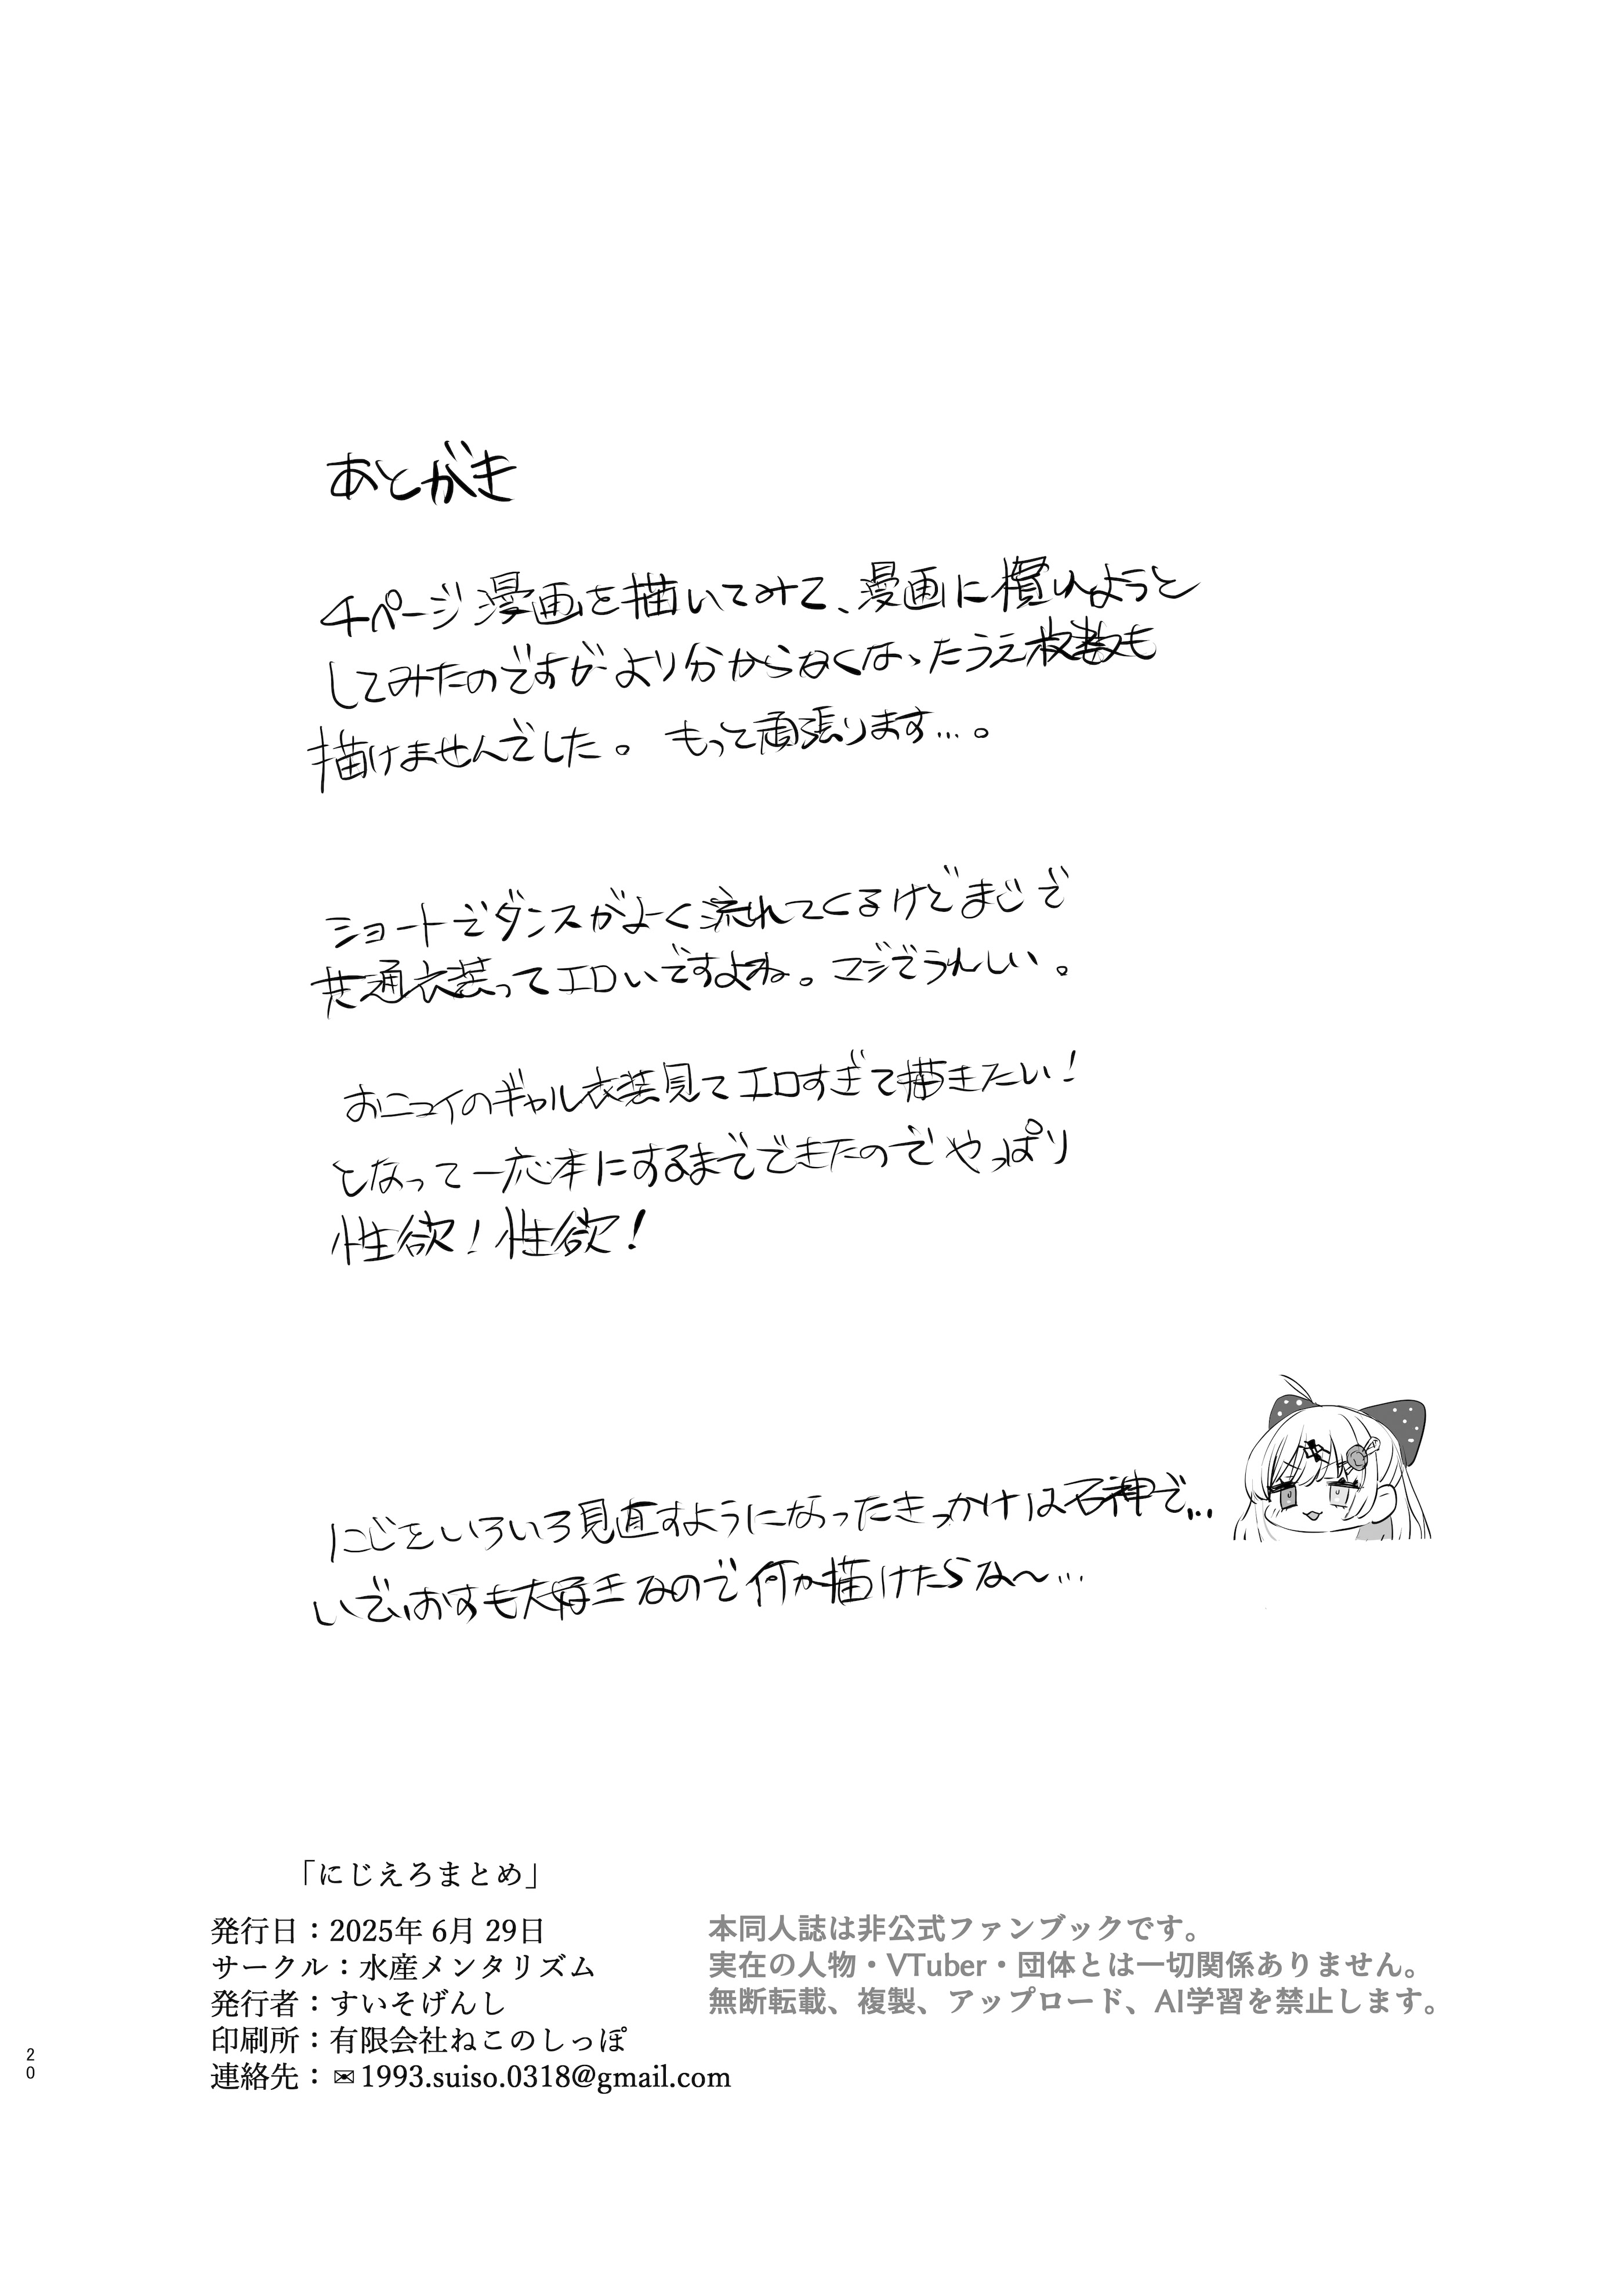 あとがき
4ページ漫画を描いてみて、漫画に慣れようと
してみたのですがより分からなくなったうえ枚数も
描けませんでした。 もって頑張ります…。
ショートでダンスがよーく流れてくるけどまじで
共通衣装ってエロいですよね。マジでうれしい。
おニュイのギャル衣装見てエロすぎて描きたい!
となって一応本にするまでできたのでやっぱり
性欲!性欲!
にじをいろいろ見直すようになったきっかけは石神で…
いでぃおすも大好きなので何か描けたらな〜…
「にじえろまとめ」
発行日:2025年 6月 29日
サークル:水産メンタリズム
発行者:すいそげんし
印刷所:有限会社ねこのしっぽ
連絡先:✉1993.suiso.0318@gmail.com
本同人誌は非公式ファンブックです。
実在の人物・VTuber・団体とは一切関係ありません。
無断転載、複製、アップロード、AI学習を禁止します。
20